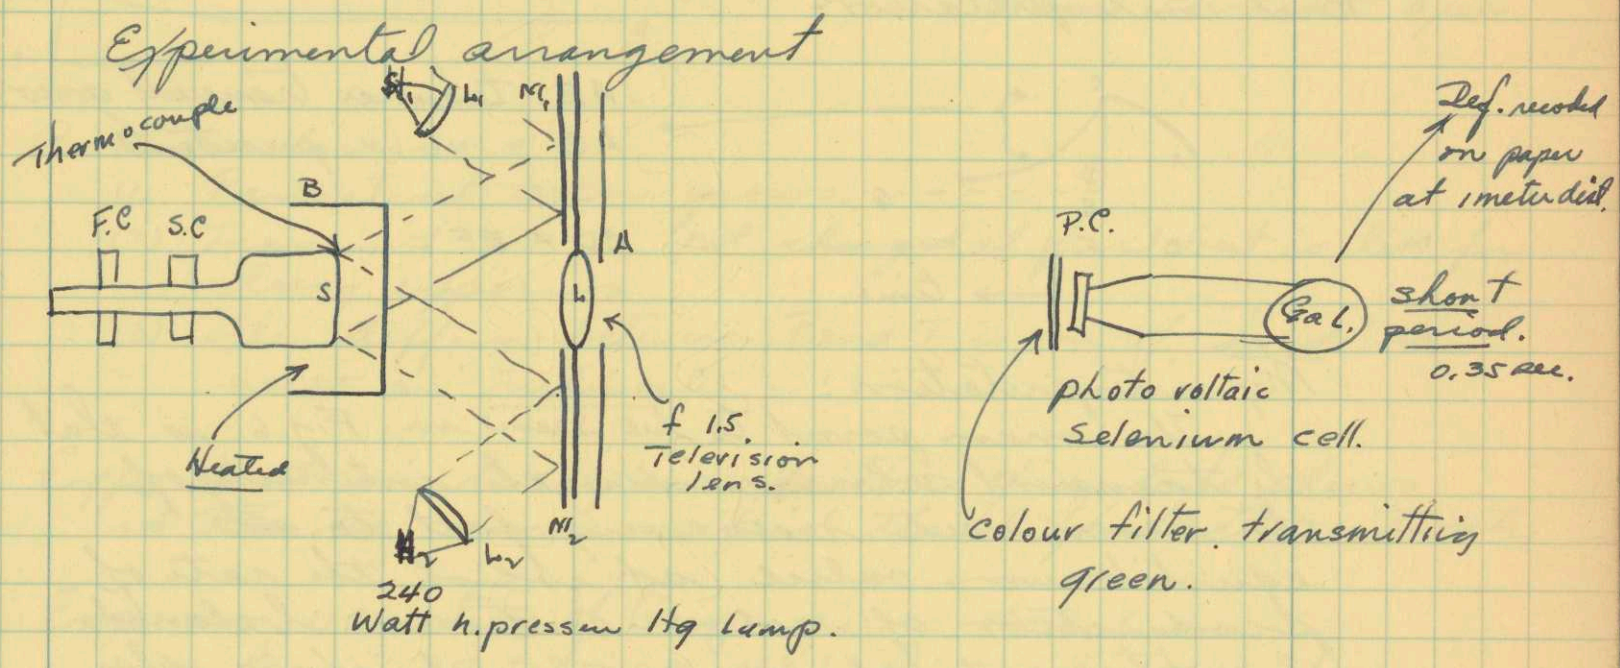 Experimental arrangement
Thermocouple
B
F.C
S.C
S
H1
L1
M1
A
L
Heated
f 1.5.
Television
lens.
H2
L2
M2
240
Watt h.pressur Hg Lamp.
Def. recoded
on paper
at 1 meter dist.
P.C.
Gal.
short
period.
0.35 sec.
photo voltaic
Selenium cell.
colour filter. transmitting
green.